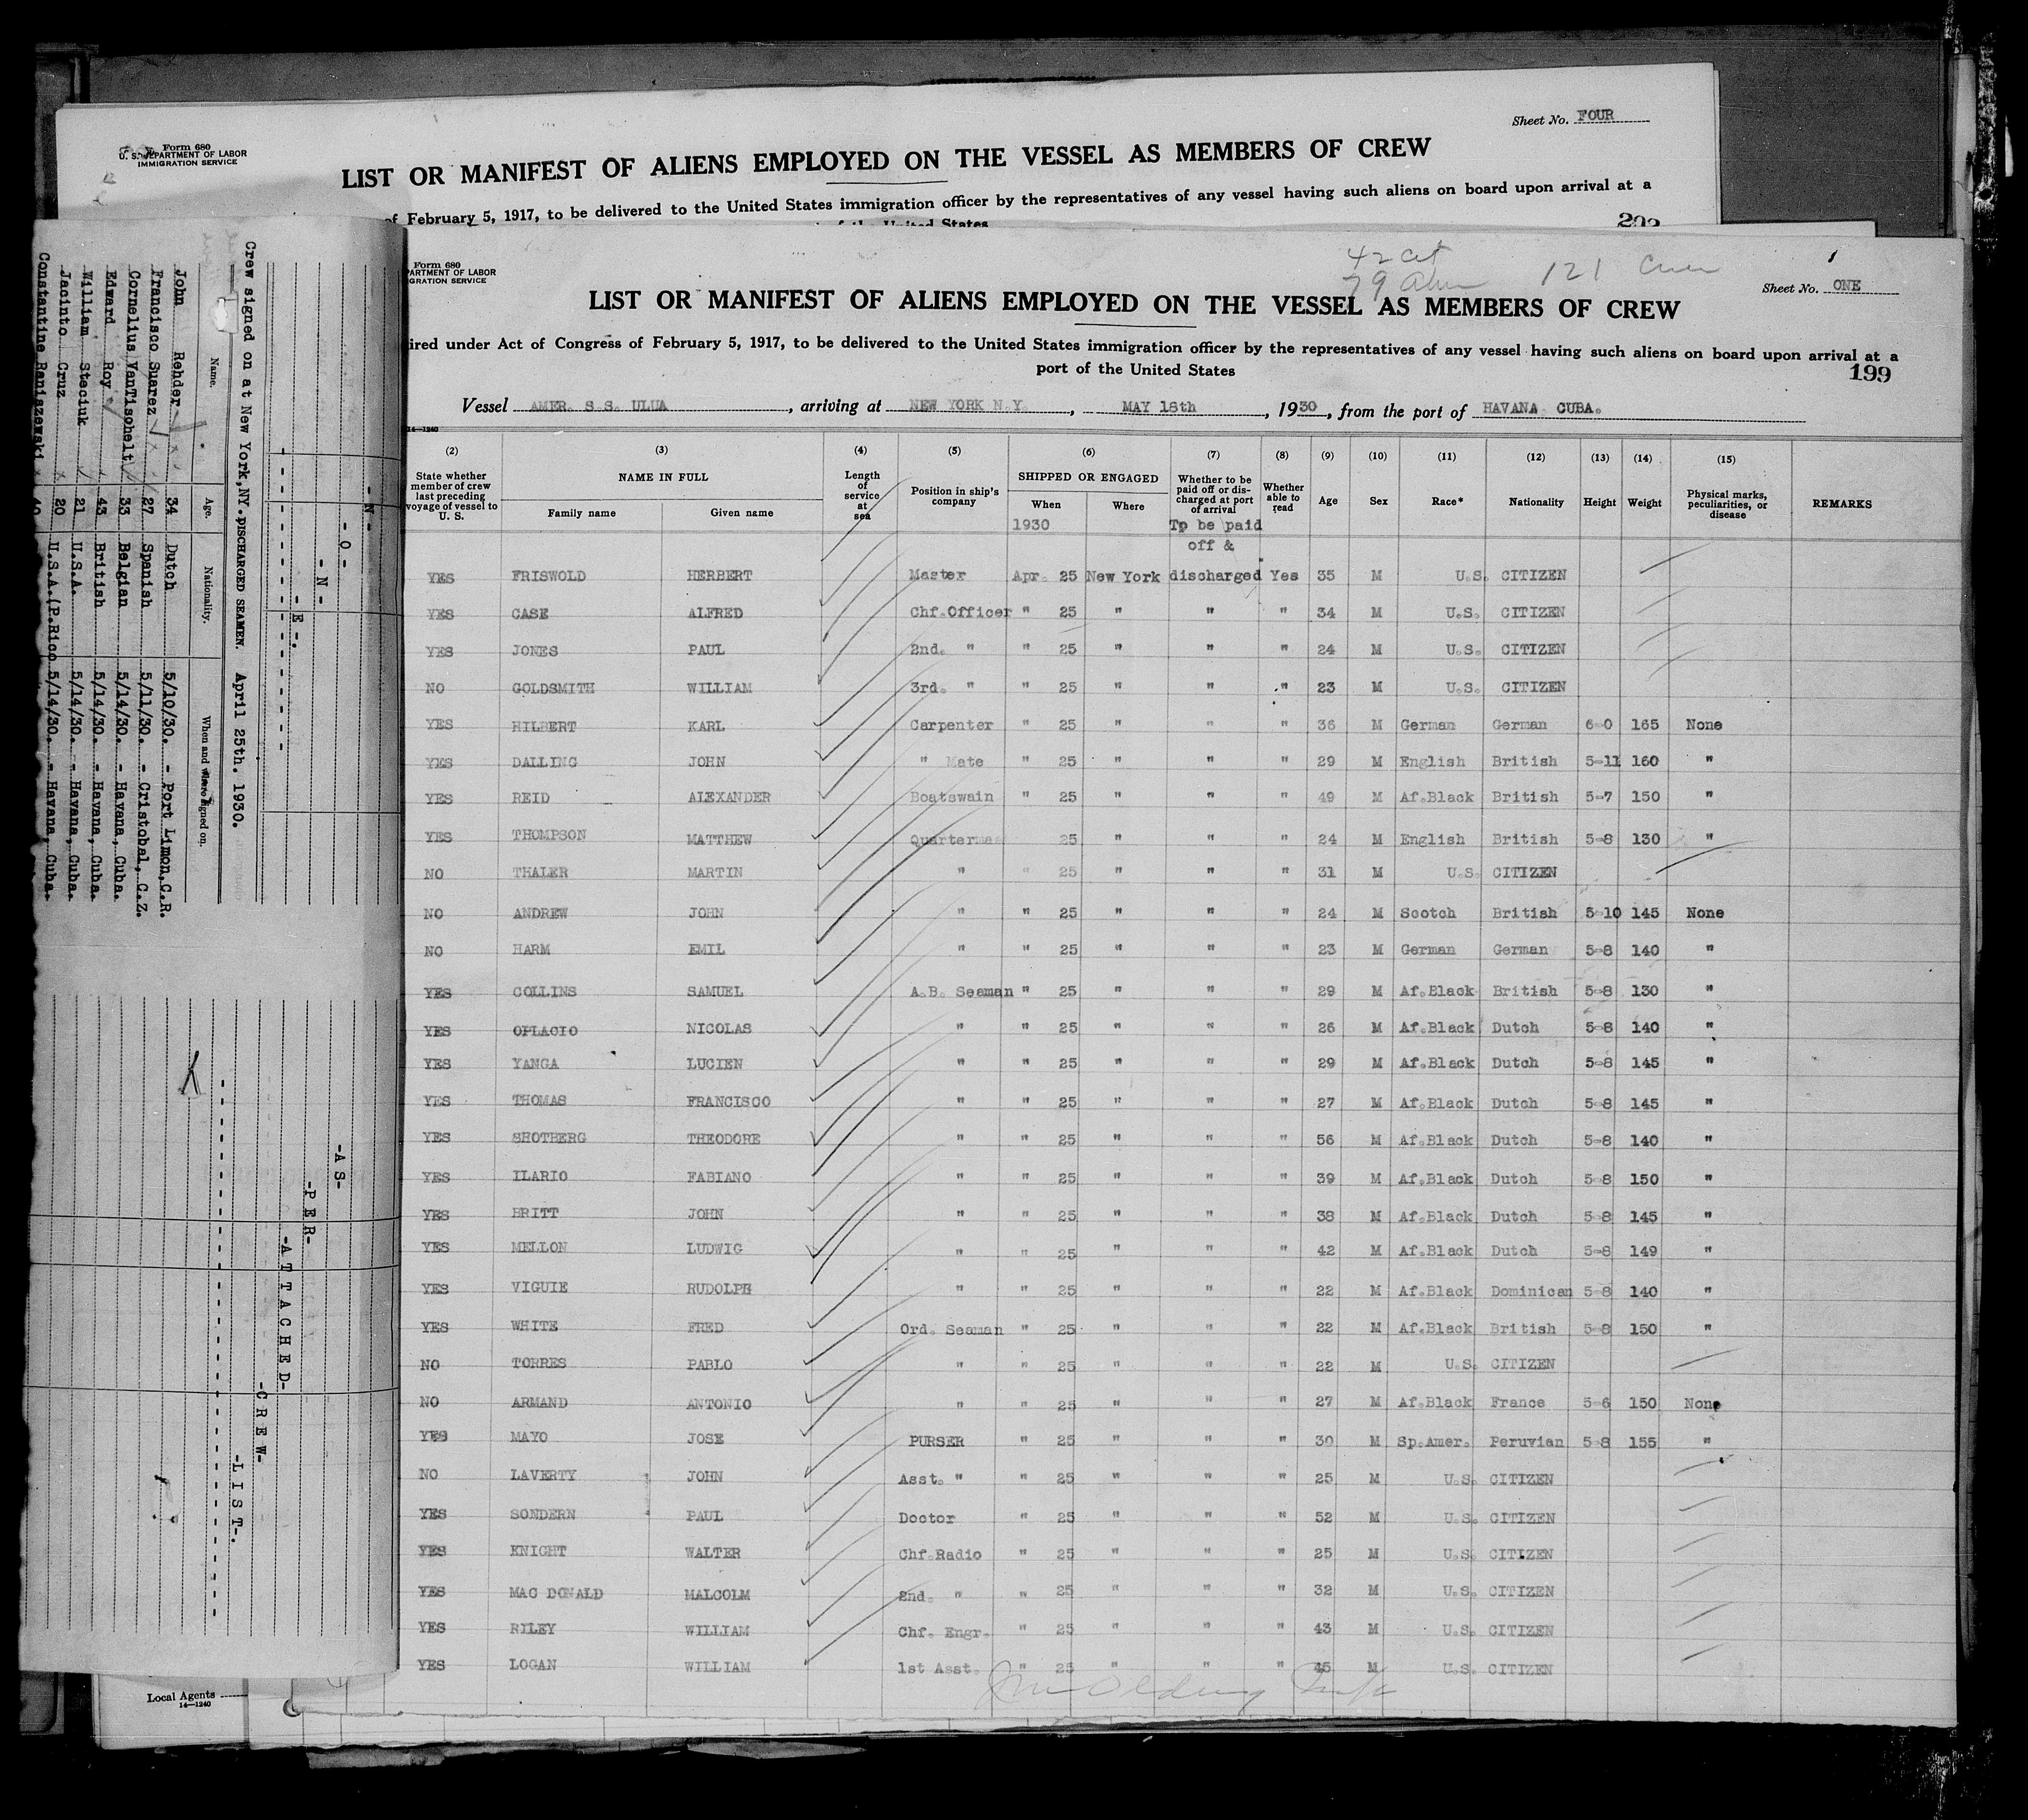 Form 680
U. S. DEPARTMENT OF LABOR
IMMIGRATION SERVICE
Sheet No. FOUR
LIST OR MANIFEST OF ALIENS EMPLOYED ON THE VESSEL AS MEMBERS OF CREW
of February 5, 1917, to be delivered to the United States immigration officer by the representatives of any vessel having such aliens on board upon arrival at a
of the United States
202
Crew signed on at New York, NY. DISCHARGED SEAMEN. April 25th. 1930.
Name. Age. Nationality. When and where signed on.
John Rehder 34 Dutch 5/10/30. - Port Limon, C.R.
Francisco Suarez 27 Spanish 5/11/30. - Cristobal, C.Z.
Cornelius VanTischelt 33 Belgian 5/14/30. - Havana, Cuba.
Edward Roy 43 British 5/14/30. - Havana, Cuba.
William Steciuk 21 U.S.A. 5/14/30. - Havana, Cuba.
Jacinto Cruz 20 U.S.A.(P.Rico 5/14/30. - Havana, Cuba.
Constantine Raniszewski 40
-N-
-O-
-N-
-E-.
-AS-
-PER-
-ATTACHED-
-CREW-
-LIST-.
Local Agents
14—1240
Form 680
PARTMENT OF LABOR
GRATION SERVICE
42 cit
79 Alien 121 Crew
1
Sheet No. ONE
LIST OR MANIFEST OF ALIENS EMPLOYED ON THE VESSEL AS MEMBERS OF CREW
ired under Act of Congress of February 5, 1917, to be delivered to the United States immigration officer by the representatives of any vessel having such aliens on board upon arrival at a
port of the United States
199
Vessel AMER. S.S. ULUA, arriving at NEW YORK N.Y., MAY 18th, 1930, from the port of HAVANA CUBA.
14—1240
(2) (3) (4) (5) (6) (7) (8) (9) (10) (11) (12) (13) (14) (15)
State whether member of crew last preceding voyage of vessel to U. S.
NAME IN FULL
Family name Given name
Length of service at sea
Position in ship's company
SHIPPED OR ENGAGED
When Where
Whether to be paid off or discharged at port of arrival
Whether able to read
Age Sex Race* Nationality Height Weight
Physical marks, peculiarities, or disease
REMARKS
1930 To be paid
off &
YES FRISWOLD HERBERT Master Apr. 25 New York discharged Yes 35 M U.S. CITIZEN
YES CASE ALFRED Chf.Officer " 25 " " " 34 M U.S. CITIZEN
YES JONES PAUL 2nd. " " 25 " " " 24 M U.S. CITIZEN
NO GOLDSMITH WILLIAM 3rd. " " 25 " " " 23 M U.S. CITIZEN
YES HILBERT KARL Carpenter " 25 " " " 36 M German German 6-0 165 None
YES DALLING JOHN " Mate " 25 " " " 29 M English British 5-11 160 "
YES REID ALEXANDER Boatswain " 25 " " " 49 M Af.Black British 5-7 150 "
YES THOMPSON MATTHEW Quartermas 25 " " " 24 M English British 5-8 130 "
NO THALER MARTIN " " 25 " " " 31 M U.S. CITIZEN
NO ANDREW JOHN " " 25 " " " 24 M Scotch British 5-10 145 None
NO HARM EMIL " " 25 " " " 23 M German German 5-8 140 "
YES COLLINS SAMUEL A.B. Seaman " 25 " " " 29 M Af.Black British 5-8 130 "
YES OPLACIO NICOLAS " " 25 " " " 26 M Af.Black Dutch 5-8 140 "
YES YANGA LUCIEN " " 25 " " " 29 M Af.Black Dutch 5-8 145 "
YES THOMAS FRANCISCO " " 25 " " " 27 M Af.Black Dutch 5-8 145 "
YES SHOTBERG THEODORE " " 25 " " " 56 M Af.Black Dutch 5-8 140 "
YES ILARIO FABIANO " " 25 " " " 39 M Af.Black Dutch 5-8 150 "
YES BRITT JOHN " " 25 " " " 38 M Af.Black Dutch 5-8 145 "
YES MELLON LUDWIG " " 25 " " " 42 M Af.Black Dutch 5-8 149 "
YES VIGUIE RUDOLPH " " 25 " " " 22 M Af.Black Dominican 5-8 140 "
YES WHITE FRED Ord. Seaman " 25 " " " 22 M Af.Black British 5-8 150 "
NO TORRES PABLO " " 25 " " " 22 M U.S. CITIZEN
NO ARMAND ANTONIO " " 25 " " " 27 M Af.Black France 5-6 150 None
YES MAYO JOSE PURSER " 25 " " " 30 M Sp.Amer. Peruvian 5-8 155 "
NO LAVERTY JOHN Asst. " " 25 " " " 25 M U.S. CITIZEN
YES SONDERN PAUL Doctor " 25 " " " 52 M U.S. CITIZEN
YES KNIGHT WALTER Chf.Radio " 25 " " " 25 M U.S. CITIZEN
YES MAC DONALD MALCOLM 2nd. " " 25 " " " 32 M U.S. CITIZEN
YES RILEY WILLIAM Chf. Engr. " 25 " " " 43 M U.S. CITIZEN
YES LOGAN WILLIAM 1st Asst. " 25 " " " 45 M U.S. CITIZEN